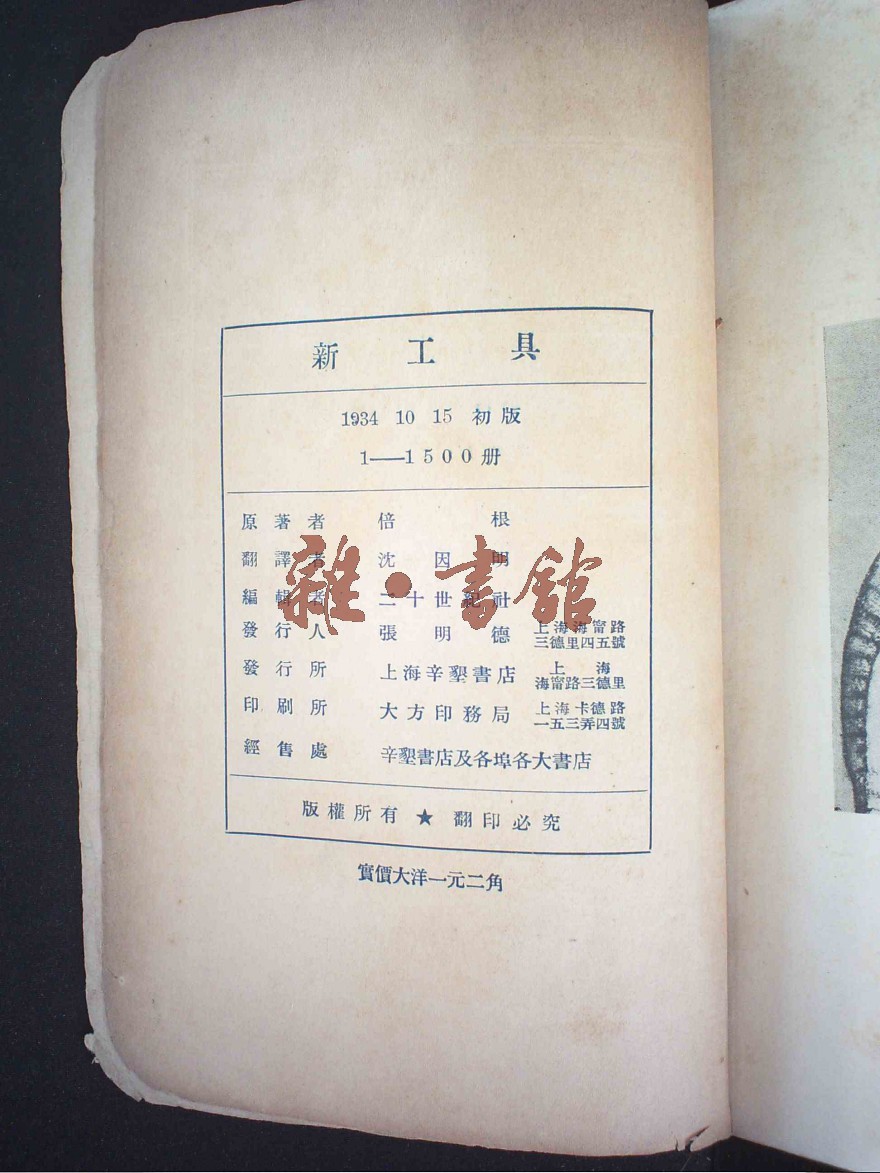 新工具
1934 10 15 初版
1——1500册
原著者 倍根
翻譯者 沈因明
編輯者 二十世紀社
發行人 張明德 上海海甯路三德里四五號
發行所 上海辛墾書店 上海海甯路三德里
印刷所 大方印務局 上海卡德路一五三弄四號
經售處 辛墾書店及各埠各大書店
版權所有 ★ 翻印必究
實價大洋一元二角
雜·書館